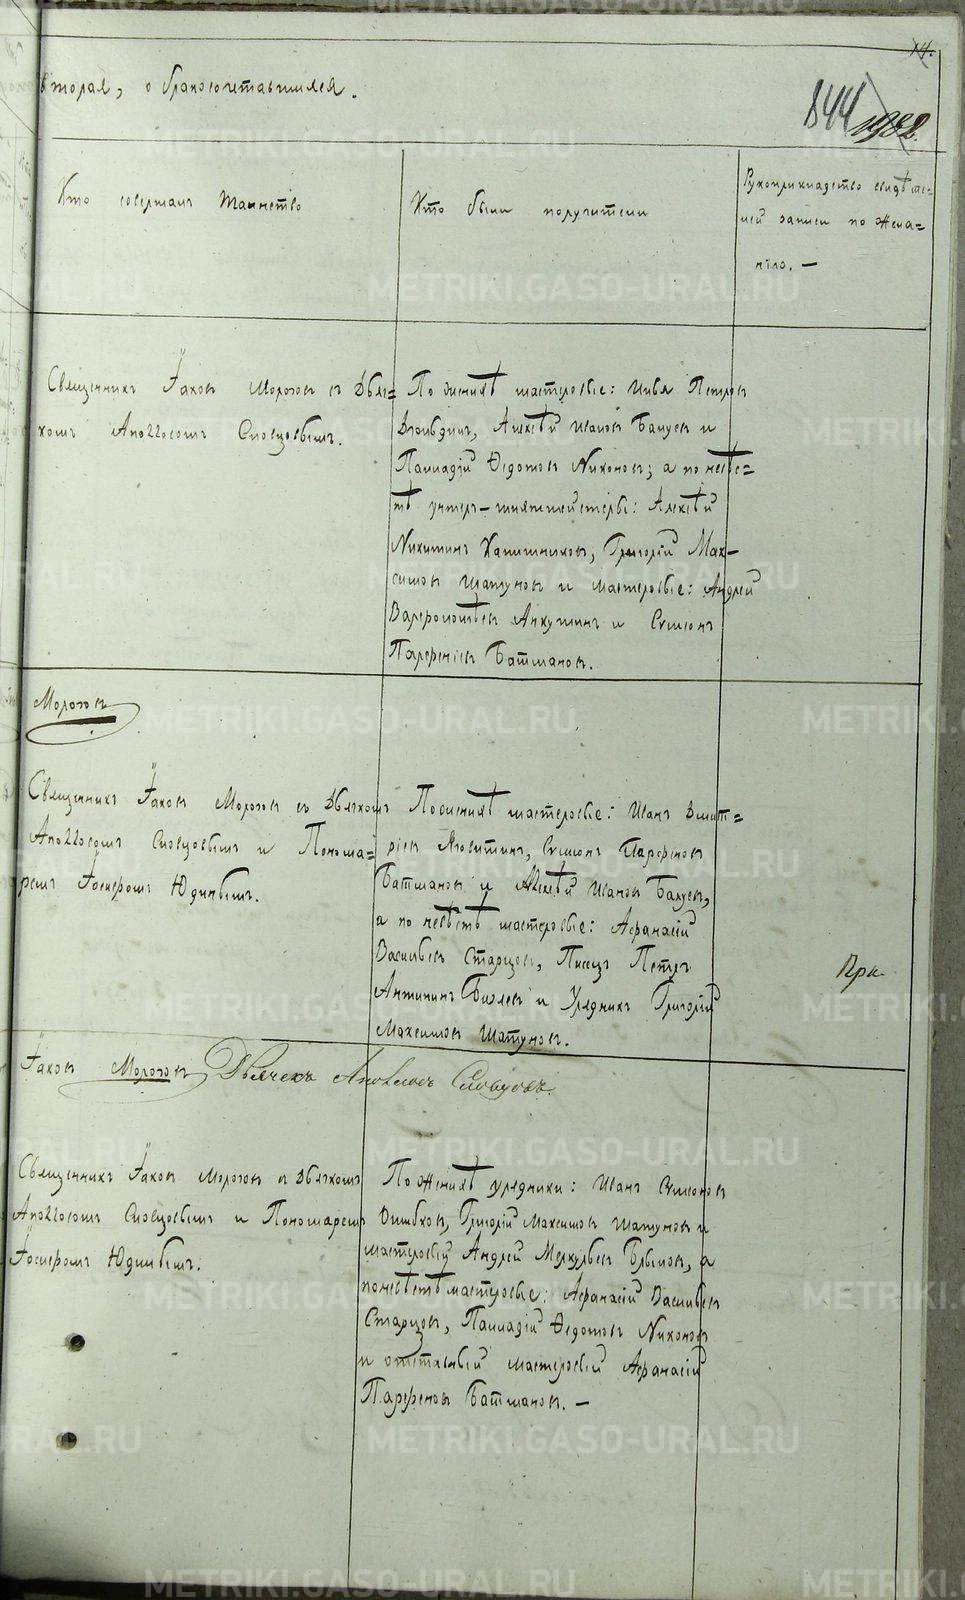 14.
вторая, о бракосочетавшихся.
844 1982
Кто совершалъ Таинство
Кто были поручители
Рукоприкладство свидѣте=
лей записи по жела=
нію. —
Священникъ Іаковъ Морозовъ съ Дьяч=
комъ Аполлосомъ Словцовымъ.
По женихѣ мастеровые: Илья Петровъ
Алексѣй Ивановъ Балуевъ и
Палладій Ѳедотовъ Никоновъ; а по невѣс=
тѣ унтеръ-шихтмейстеры: Алексѣй
Никитинъ Григорій Мак-
симовъ Шатуновъ и мастеровые: Андрей
Варѳоломѣевъ Анкушинъ и Симеонъ
Парфеніевъ Батмановъ.
Морозовъ
Священникъ Іаковъ Морозовъ съ Дьячкомъ
Аполлосомъ Словцовымъ и Понома=
ремъ Іосифомъ Юдинымъ.
По женихѣ мастеровые: Иванъ Дмит=
ріевъ Симеонъ Парфеновъ
Батмановъ и Алексѣй Ивановъ Балуевъ,
а по невѣстѣ мастеровые: Афанасій
Васильевъ Старцовъ, Писецъ Петръ
Антипинъ и Урядникъ Григорій
Максимовъ Шатуновъ.
При
Іаковъ Морозовъ Дьячекъ Аполлосъ Словцовъ.
Священникъ Іаковъ Морозовъ съ Дьячкомъ
Аполлосомъ Словцовымъ и Пономаремъ
Іосифомъ Юдинымъ.
По женихѣ урядники: Иванъ Симеоновъ
Григорій Максимовъ Шатуновъ и
мастеровый Андрей Меркурьевъ а
по невѣстѣ мастеровые: Афанасій Васильевъ
Старцовъ, Палладій Ѳедотовъ Никоновъ
и отставный мастеровый Афанасій
Парфеновъ Батмановъ. —
METRIKI.GASO-URAL.RU